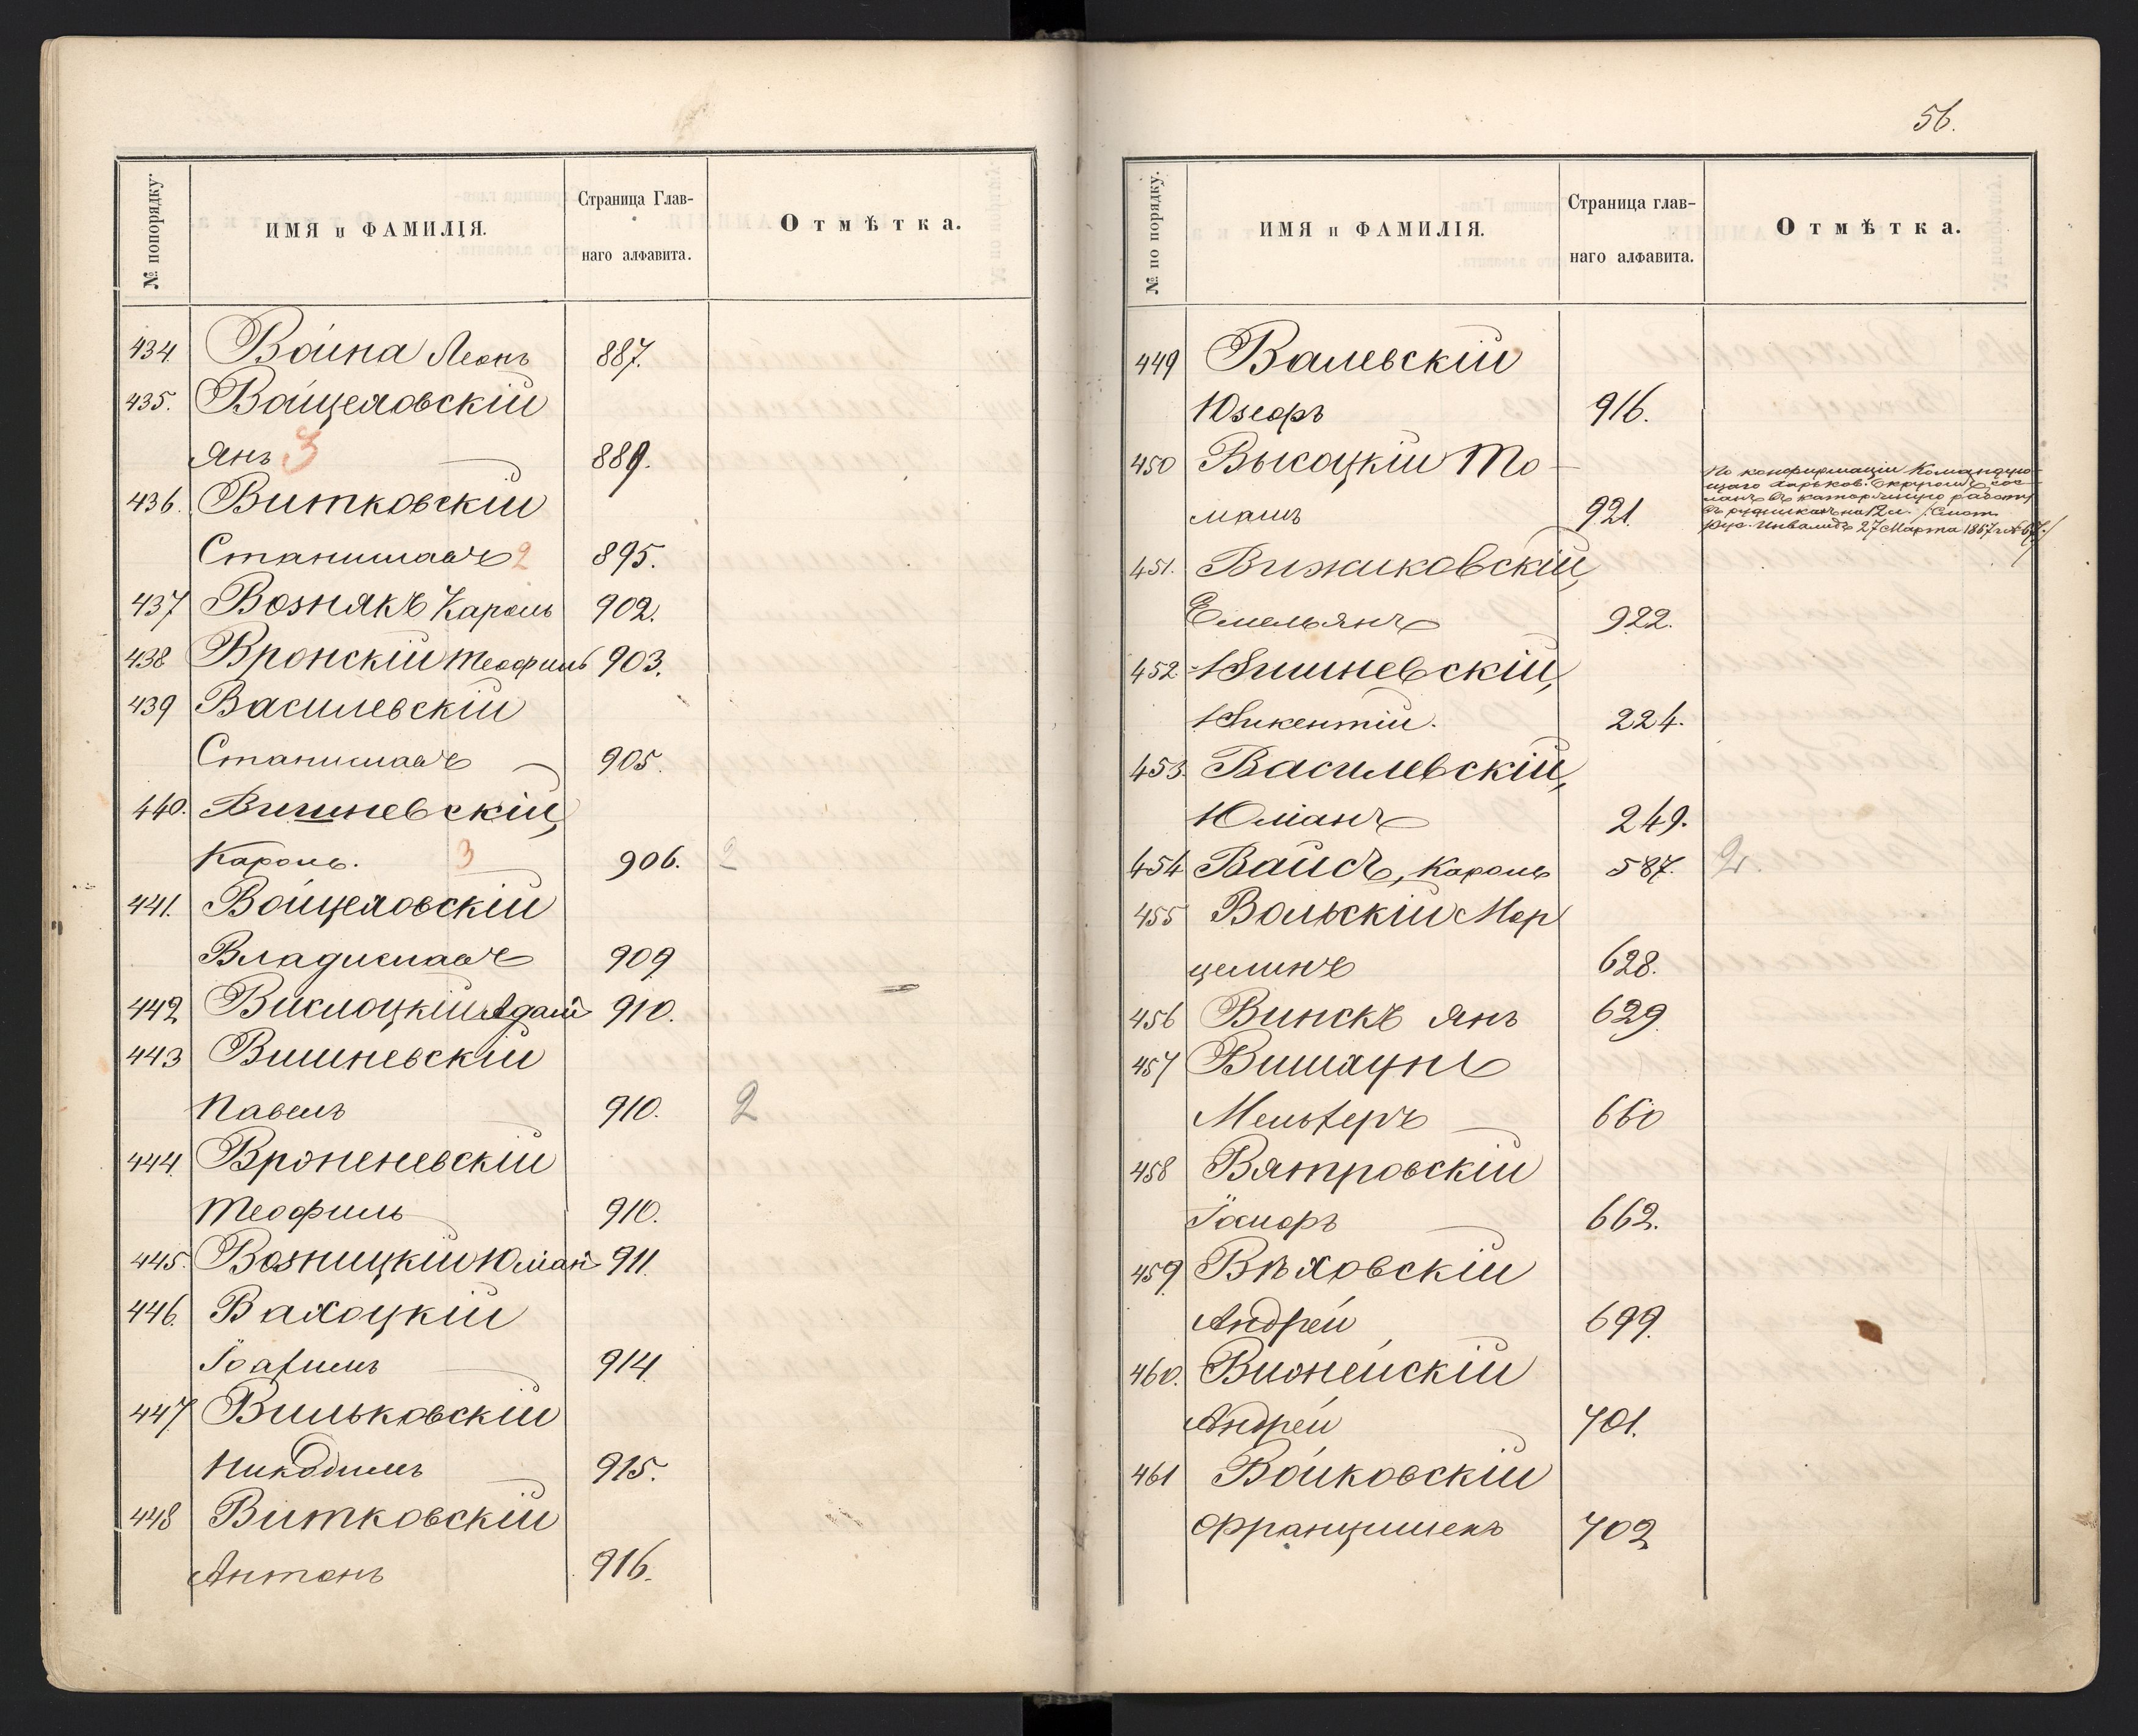 № попорядку.
ИМЯ и ФАМИЛІЯ.
Страница Глав-
наго алфавита.
Отмѣтка.
434. Война Леонъ 887.
435. Войцеховскій
Янъ 3 889.
436. Витковскій
Станиславъ 2 895.
437 Вознякъ Кароль 902.
438 Вронскій Теофиль 903.
439 Василевскій
Станиславъ 905.
440. Вишневскій,
Кароль. 3 906. 2
441. Войцеховскій
Владиславъ 909
442 Вислоцкій Адам 910.
443 Вишневскій
Павелъ 910. 2
444. Вроненевскій
Теофиль 910.
445. Возницкій Юліан 911.
446. Вахоцкій
Іоахимъ 914
447 Вильковскій
Никодимъ 915.
448 Витковскій
Антонъ 916.
56.
№ по порядку.
ИМЯ и ФАМИЛІЯ.
Страница глав-
наго алфавита.
Отмѣтка.
449 Валевскій
Юзефъ 916.
450 Высоцкій То-
машъ 921.
По конфирмаціи Командую-
щаго Харьков. Округомъ сос-
ланъ въ каторжную работу
въ рудникахъ на 12 л. /Смот.
Рус. Инвалидъ 27 Марта 1867 г. № 67./
451. Вижиковскій,
Емельянъ 922.
452. Вишневскій,
Викентій. 224.
453. Василевскій,
Юліанъ 249.
454 Вайсъ, Кароль 587. 2.
455 Вольскій Мар
целинъ 628.
456 Винскъ Янъ 629.
457
Мельхеръ 660
458 Вятровскій
662.
459. Вѣховскій
Андрей 699.
460.
Андрей 701.
461 Войковскій
Францишекъ 702